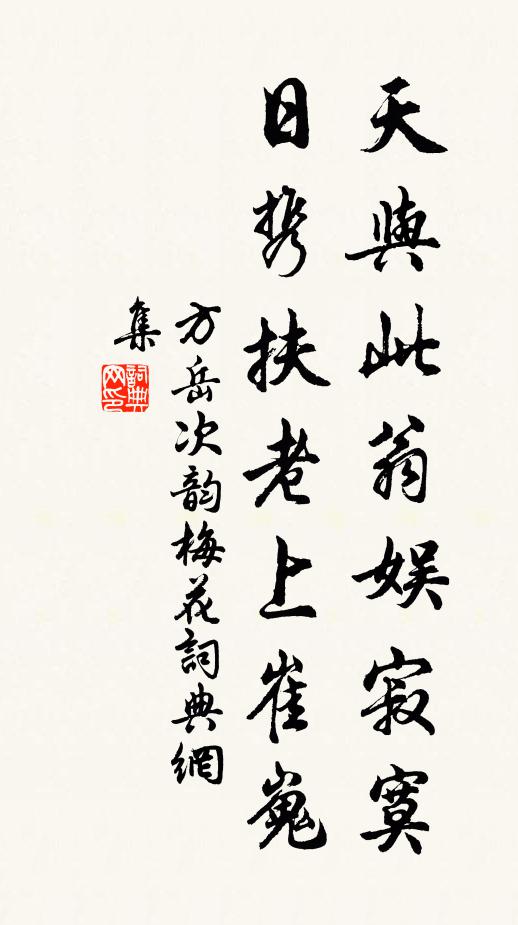 天與此翁娛寂寞
日携扶老上崔嵬
方岳次韵梅花詞典網
集
詞典
网印